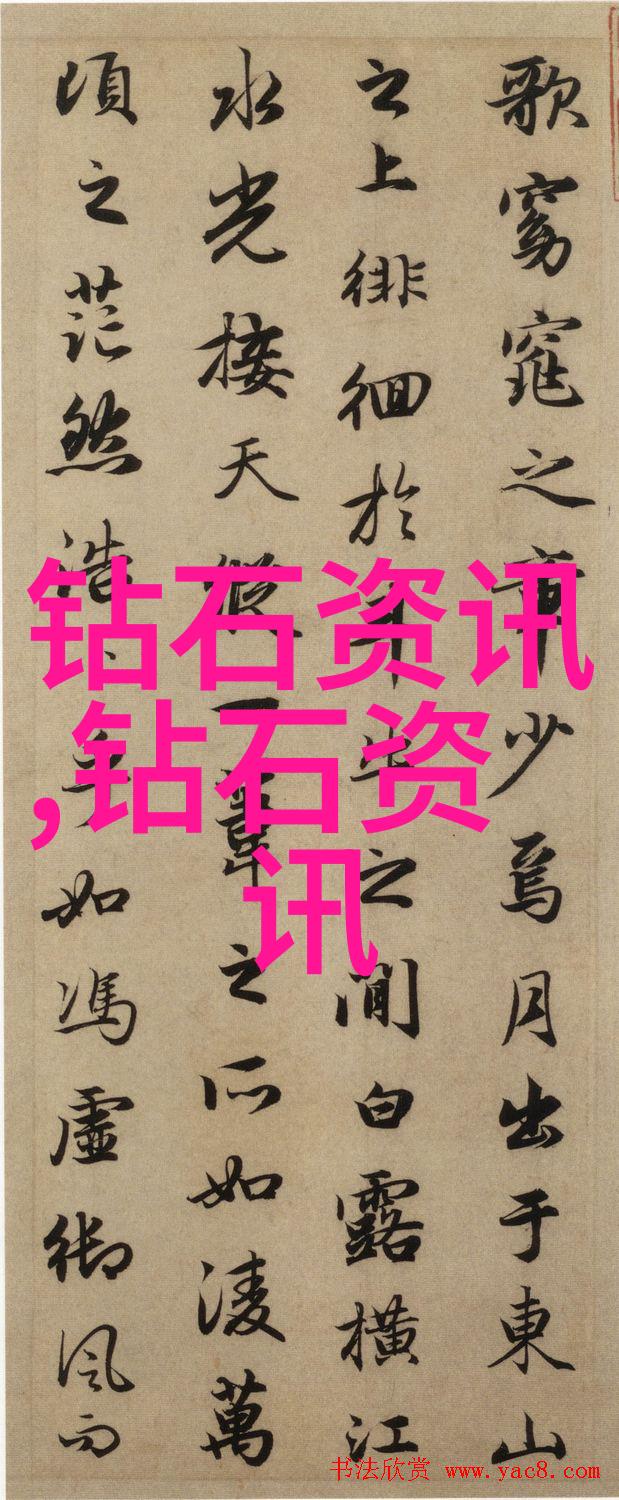 歌窈窕之章少焉月出于東山
之上徘徊於斗牛之間白露橫江
水光接天縱一葦之所如淩萬
頃之茫然浩〻乎如馮虛御風而
钻石资讯
,钻石资
讯
书法欣赏 www.yac8.com